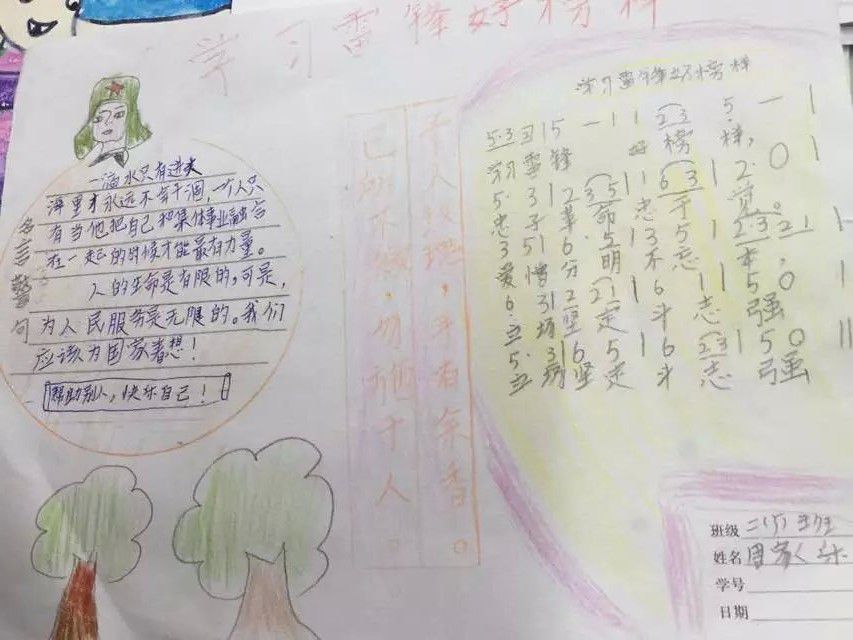 学习雷锋好榜样
名言警句
一滴水只有进大
海里才永远不会干涸,一个人只
有当他把自己和集体事业融合
在一起的时候才能最有力量。
人的生命是有限的,可是,
为人民服务是无限的。我们
应该为国家着想!
帮助别人,快乐自己!
予人玫瑰,手有余香。
己所不欲,勿施于人。
学习雷锋好榜样
5·3 315 一 1 1 23 5· 一 1
学习雷锋 好榜样,
5· 3 1 2 35 1 1 63 1 2· 0 1
忠于革命忠于党。
3 51 6· 5 1 3 5 1 2·321 1
爱憎分明不忘本,
6 31 2 21 1 6 1 1 5 0 1
立场坚定斗志强
5· 3 1 6 5 1 6 23 1 5 0 ||
立场坚定斗志强
班级 二(5)班
姓名
学号
日期